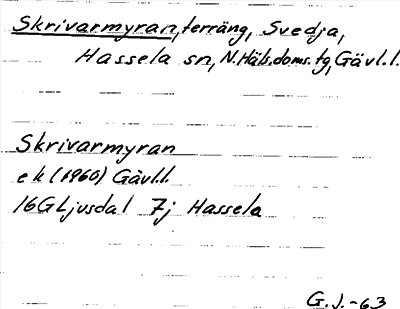 Skrivarmyran, terräng, Svedja,
Hassela sn, N.Häls.doms.tg, Gävl.l.
Skrivarmyran
ek (1960) Gävl.l.
16G Ljusdal 7j Hassela
G.J.-63